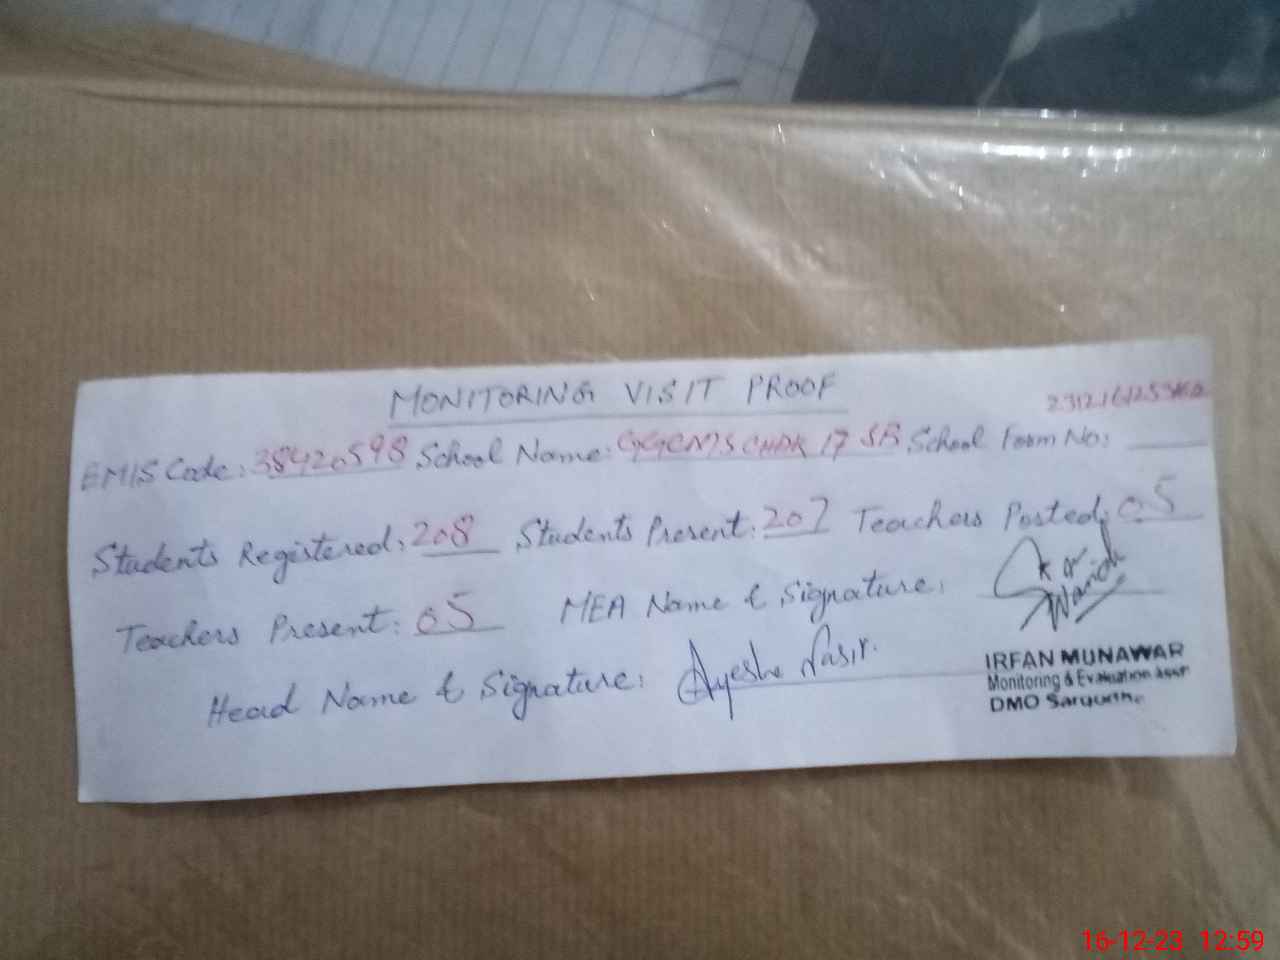 MONITORING VISIT PROOF
EMIS Code: 38420598 School Name: CHAK 17 SB School Form No:
Students Registered: 208 Students Present: 207 Teachers Posted: 05
Teachers Present: 05 MEA Name & Signature:
Head Name & Signature: Ayesha Nasir.
IRFAN MUNAWAR
Monitoring & Evaluation Asstt
DMO Sargodha
16-12-23 12:59